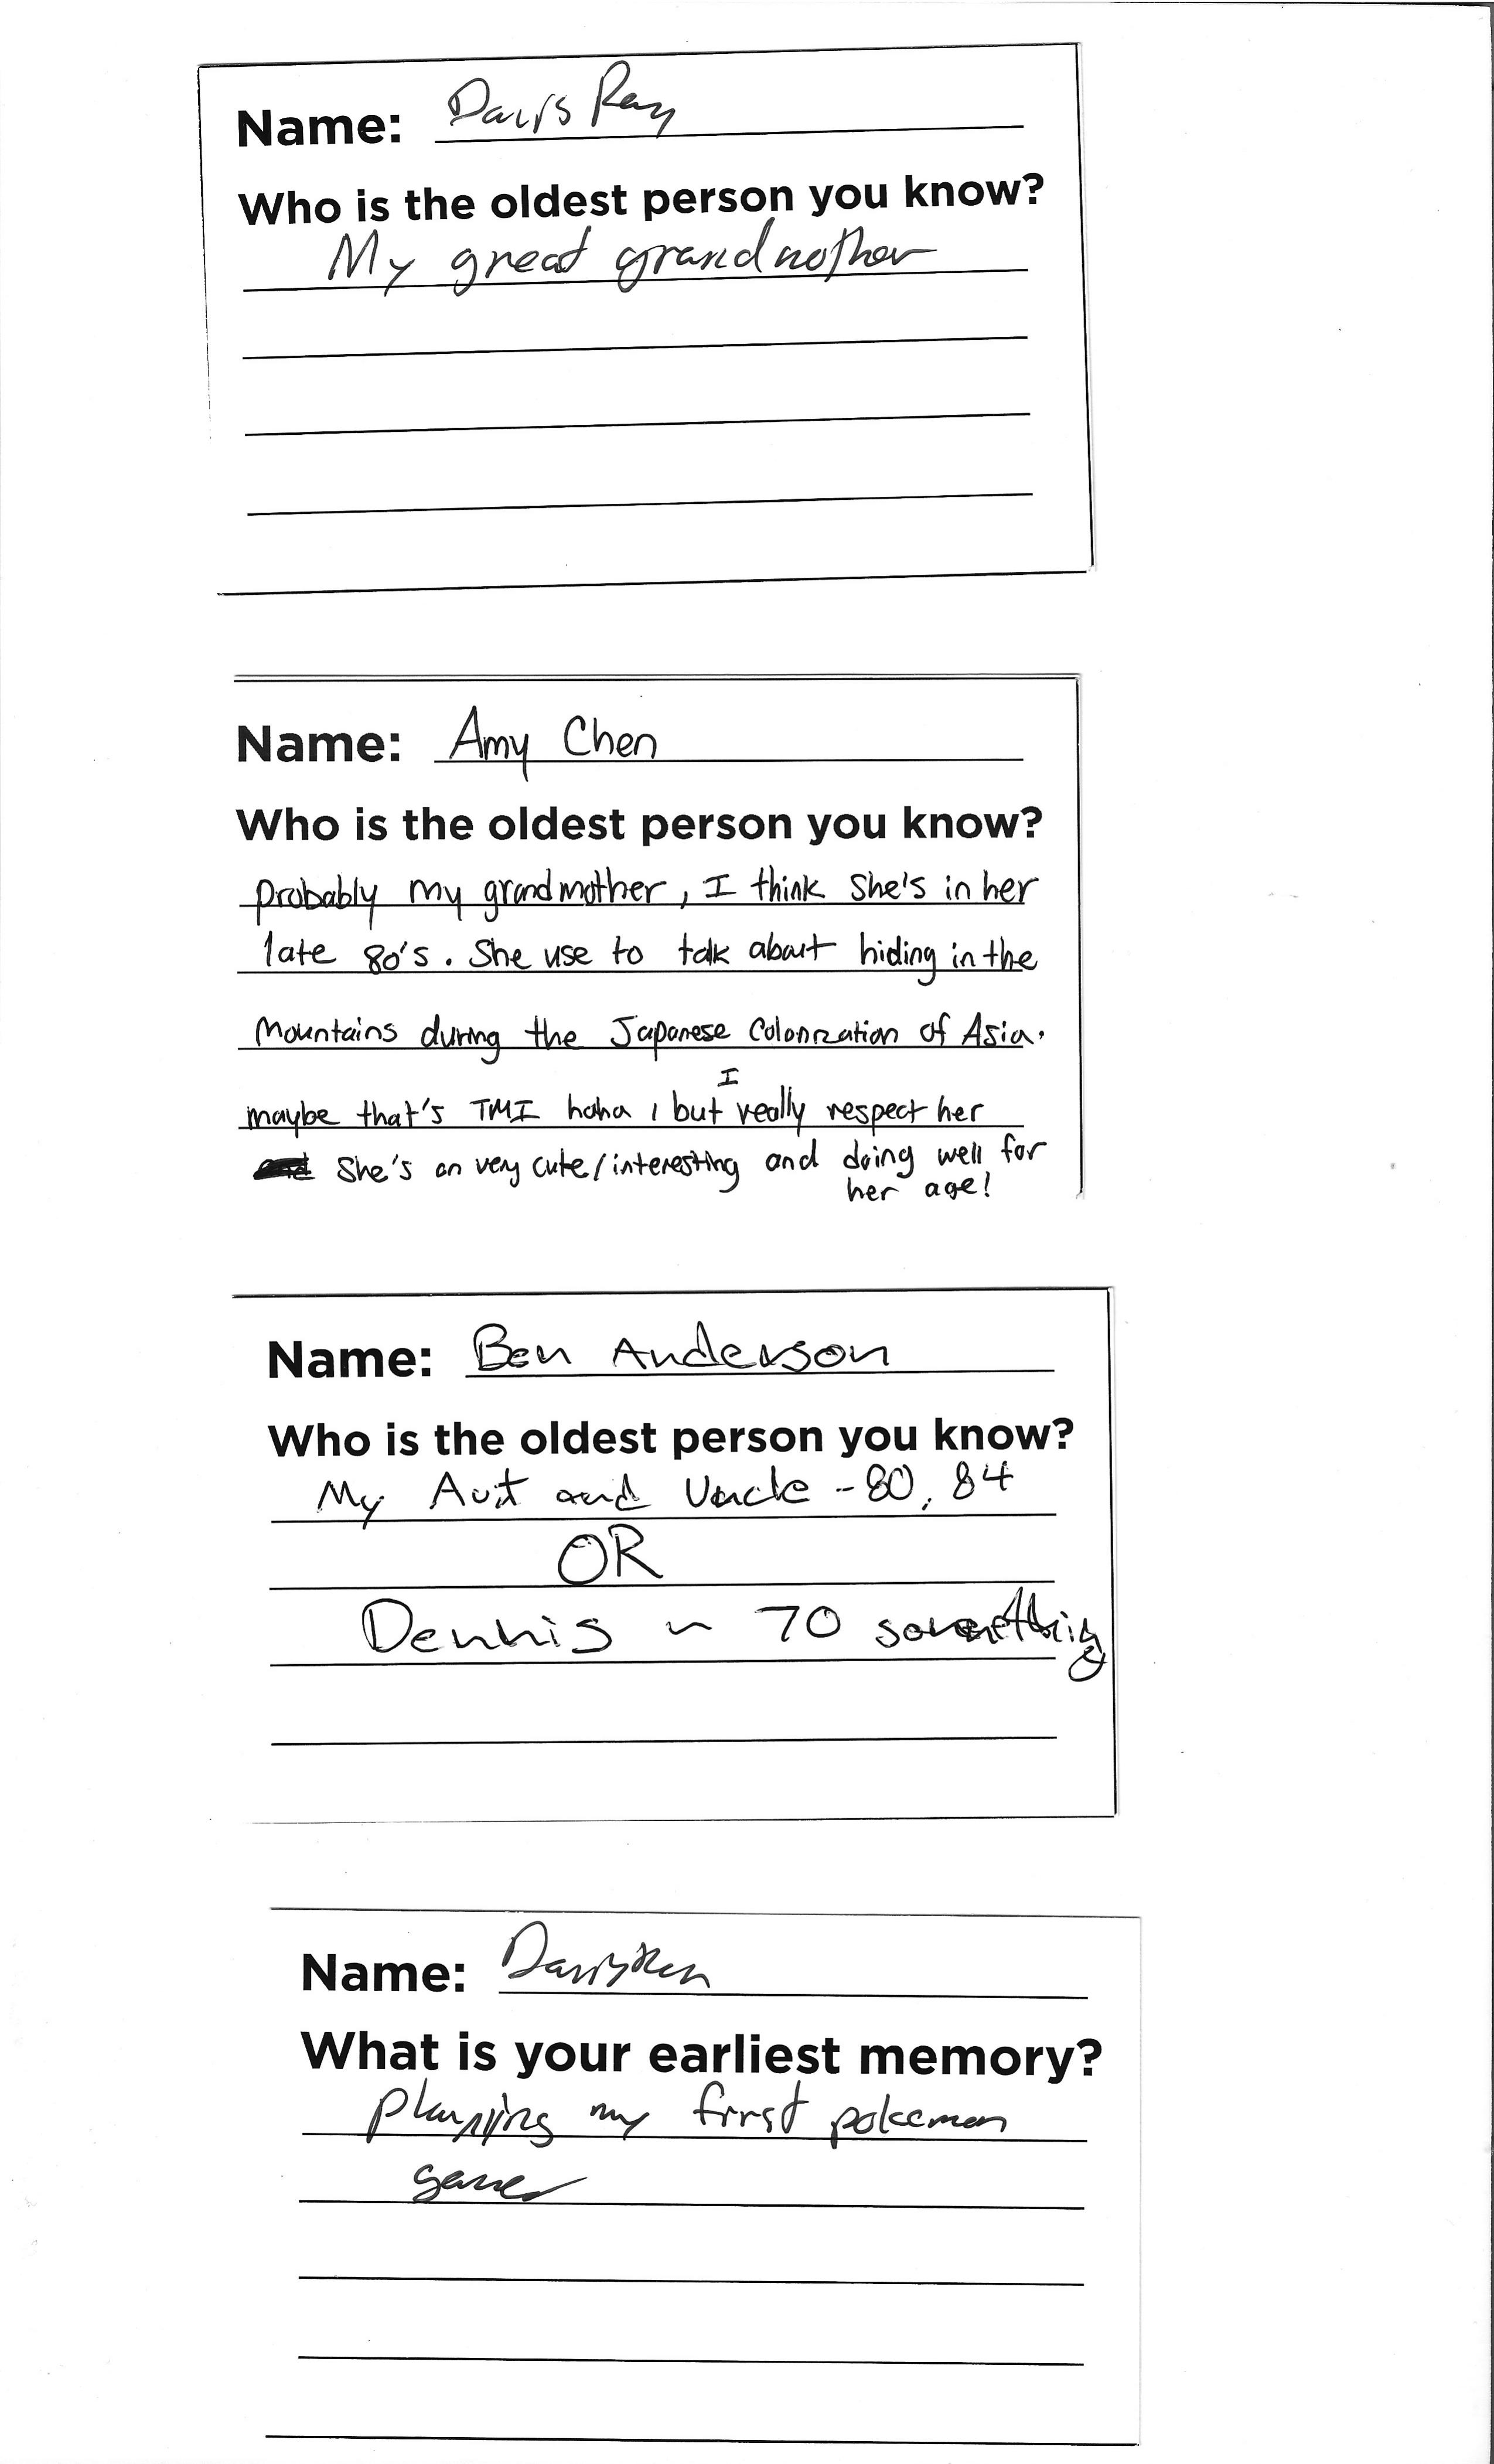 Name: Davis Ray
Who is the oldest person you know?
My great grandmother
Name: Amy Chen
Who is the oldest person you know?
probably my grandmother, I think she's in her
late 80's. She use to talk about hiding in the
Mountains during the Japanese Colonization of Asia.
I
maybe that's TMI haha, but really respect her
She's an very cute/interesting and doing well for
her age!
Name: Ben Anderson
Who is the oldest person you know?
My Aut and Uncle - 80, 84
OR
Dennis ~ 70 something
Name:
What is your earliest memory?
playying my first pokemon
game